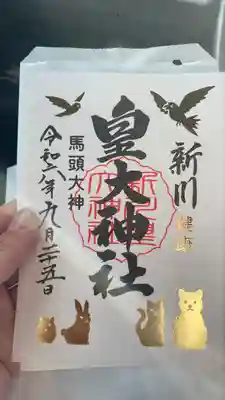 新川
皇大神社
馬頭大神
令和六年九月二十五日